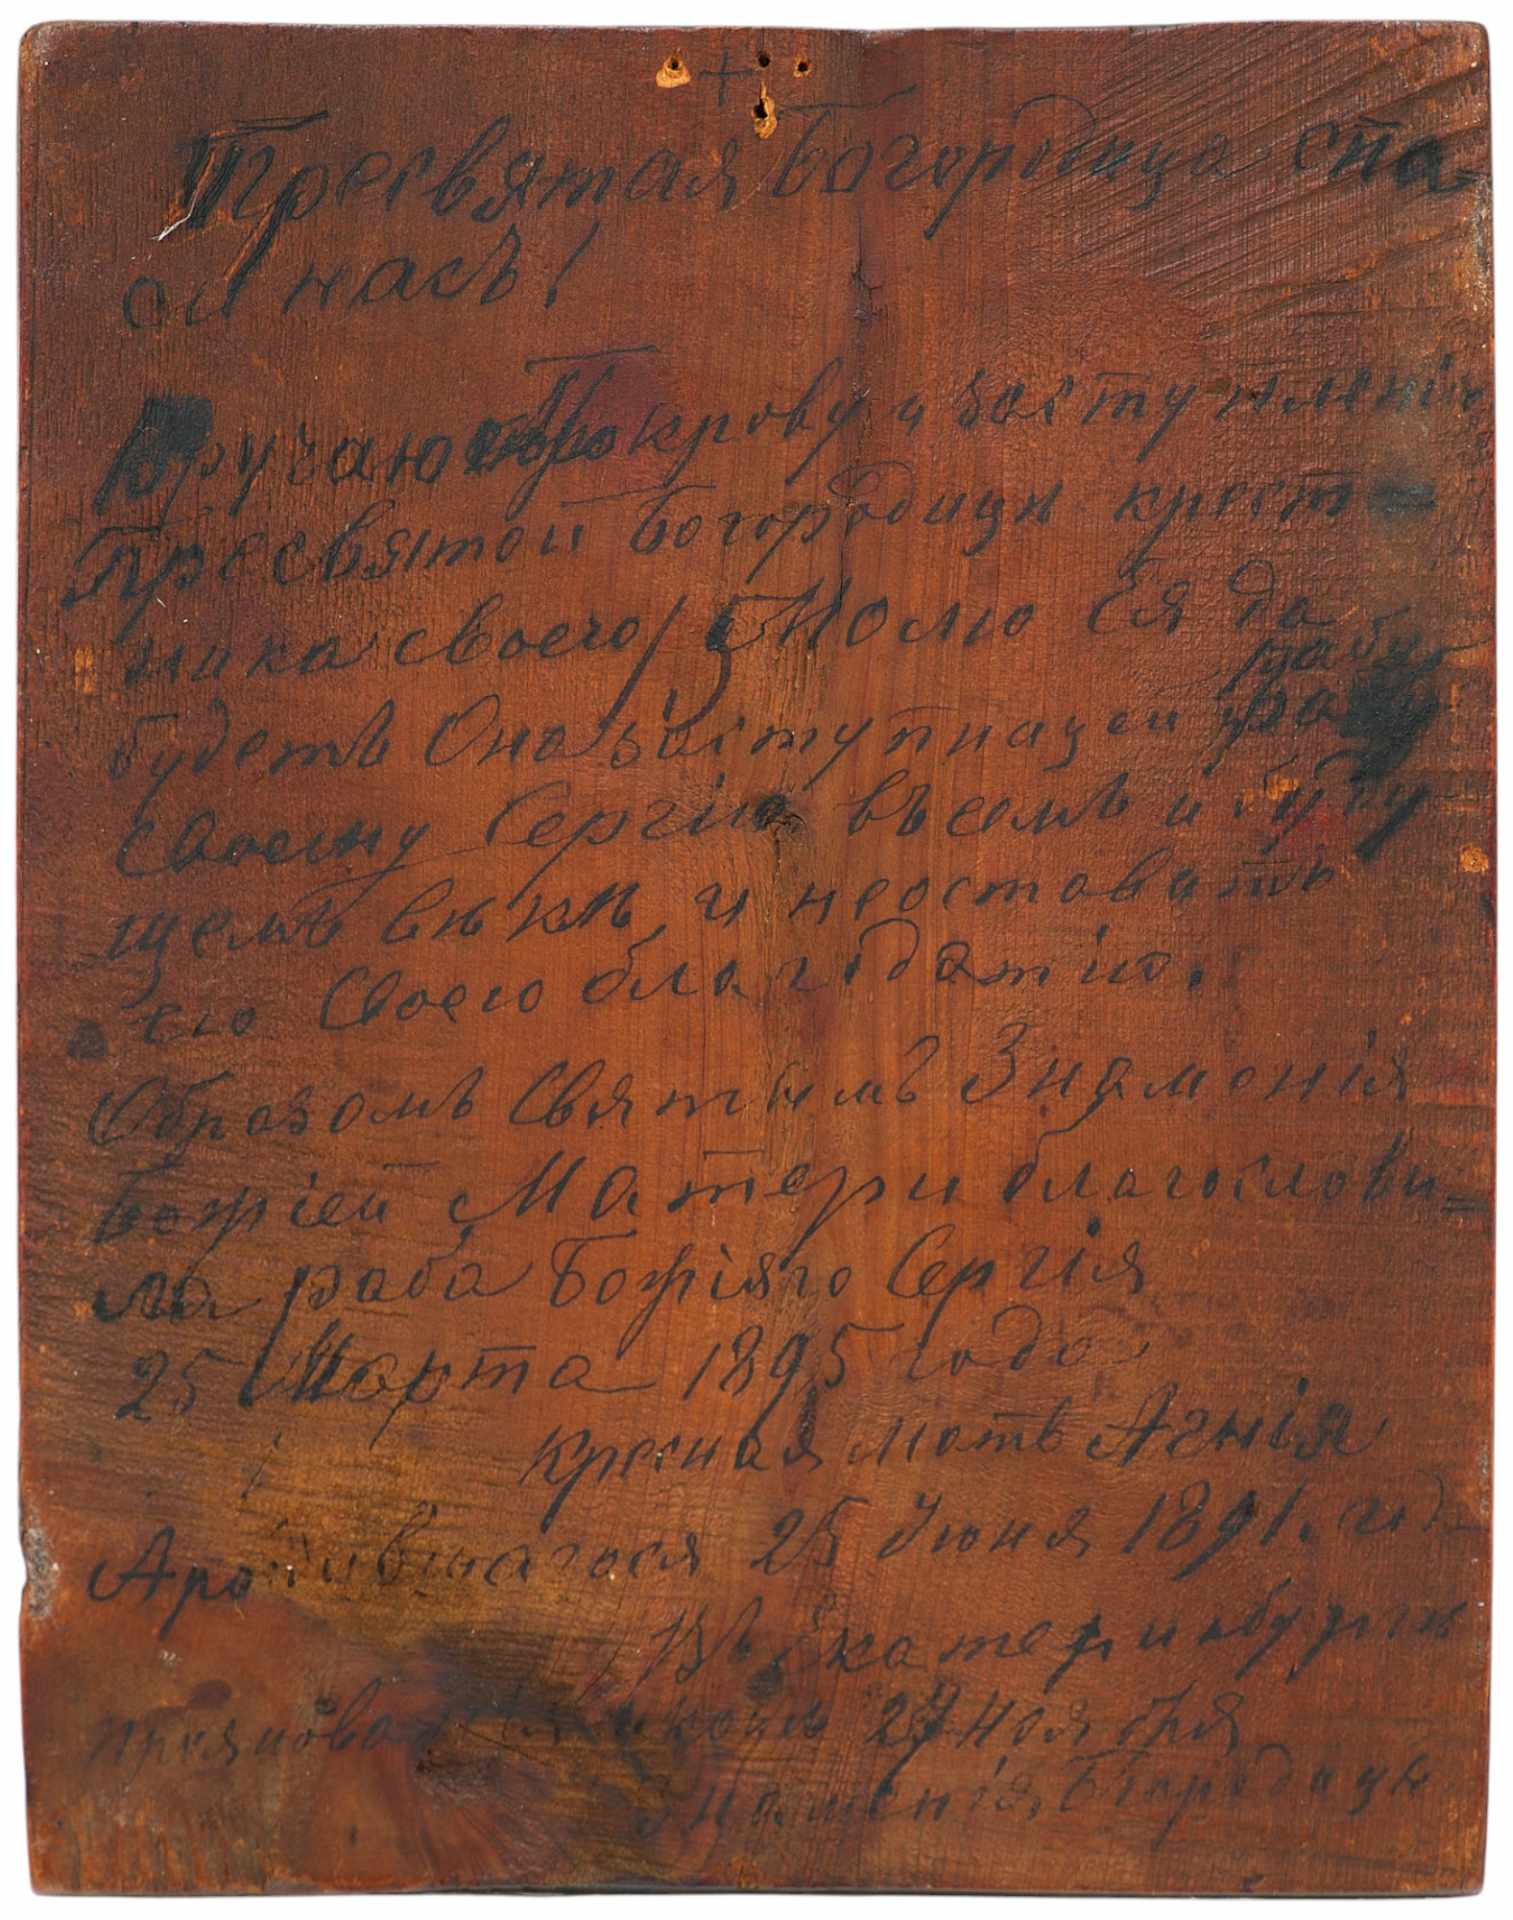 +
Пресвятая Богородица спа-
си насъ!
Вручаю Покрову и заступленію
Пресвятой Богородицы крест-
ника своего, Молю Ея да
будетъ Она заступницей рабу
рабу
своему Сергію въ семъ и буду-
щемъ вѣкѣ, и неоставитъ
его Своею благодатію.
Образомъ Святымъ Знаменія
Божіей Матери благослови-
ла раба Божіяго Сергія
25 Марта 1895 года
кресная мать Агнія
А родившагося 25 Июня 1891. год
Въ Екатеринбургѣ
праздновать 27 ноября
Знаменія Богородицы